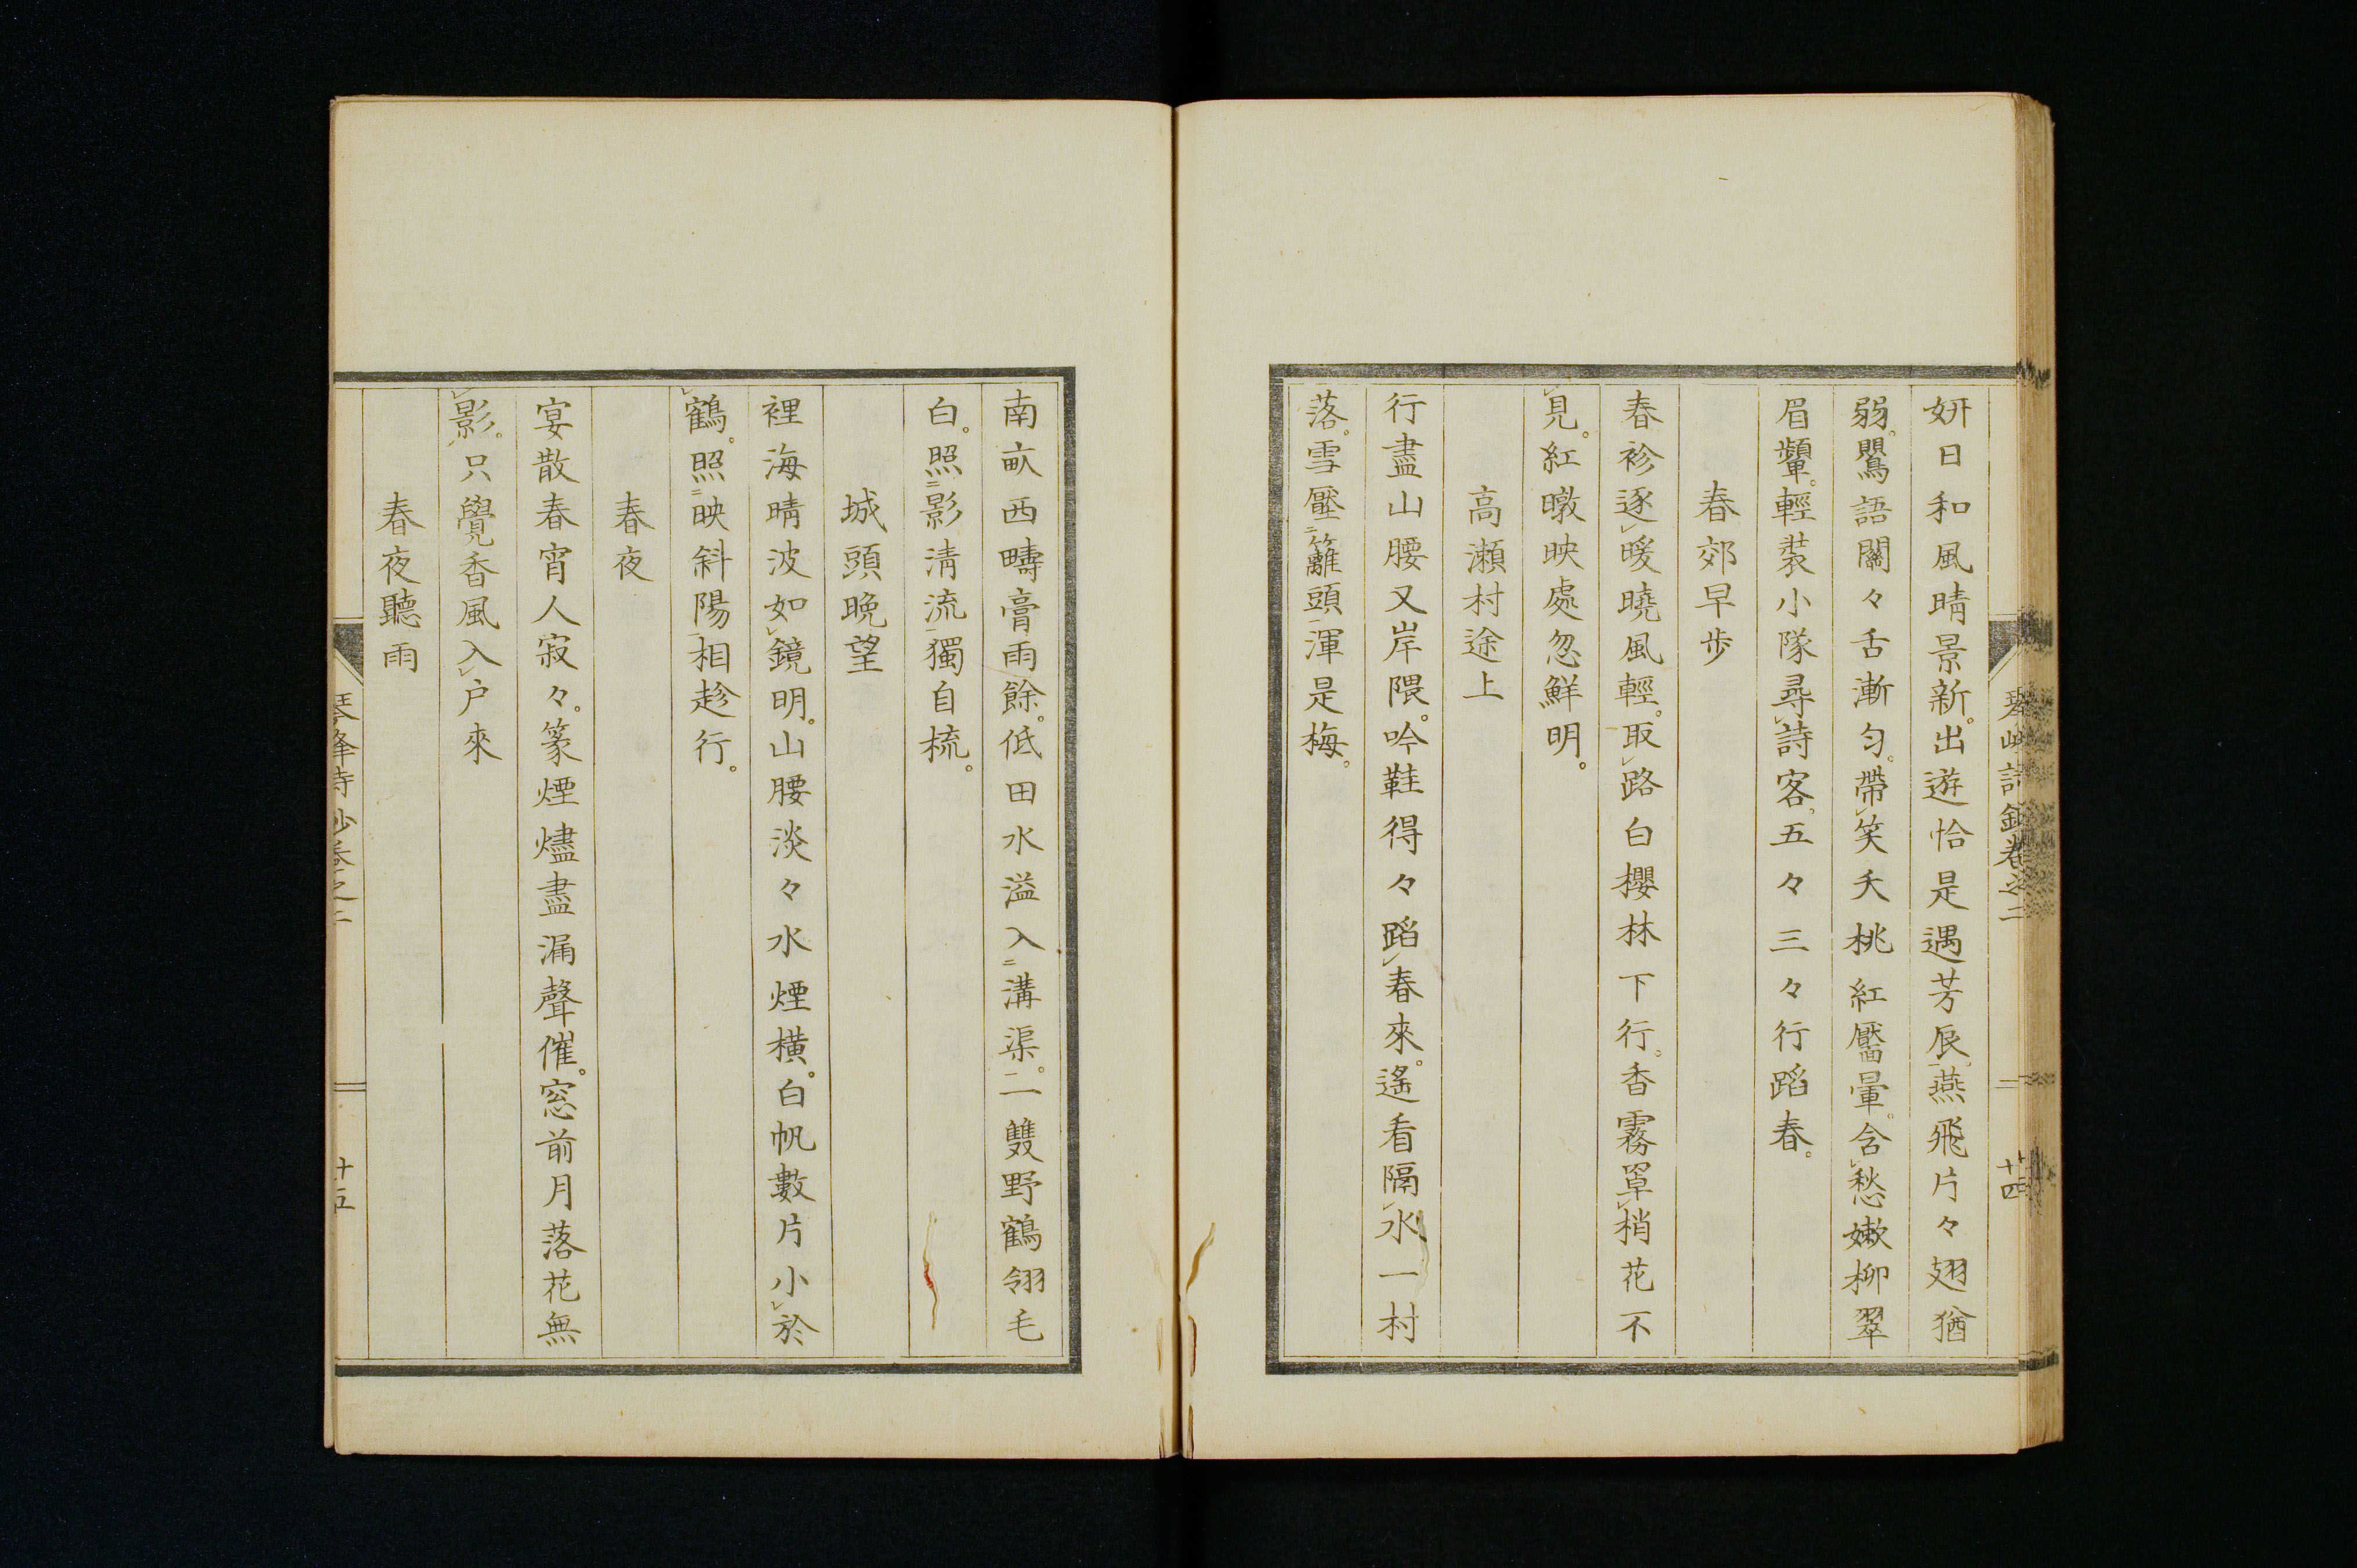 妍日和風晴景新。出遊恰是遇芳辰。燕飛片々翅猶
弱。鸎語關々舌漸匀。帶笑夭桃紅靨暈。含愁嫩柳翠
眉顰。輕裝小隊尋詩客。五々三々行蹈春。
春郊早歩
春衫逐暖曉風輕。取路白櫻林下行。香霧罩梢花不
見。紅暾映處忽鮮明。
高瀨村途上
行盡山腰又岸隈。吟鞋得々蹈春來。遙看隔水一村
落。雪壓籬頭渾是梅。
詩鈔卷之二
廿四
南畝西疇膏雨餘。低田水溢入溝渠。一雙野鶴翎毛
白。照影淸流獨自梳。
城頭晩望
裡海晴波如鏡明。山腰淡々水煙橫。白帆數片小於
鶴。照映斜陽相趁行。
春夜
宴散春宵人寂々。篆煙燼盡漏聲催。窓前月落花無
影。只覺香風入戶來
春夜聽雨
琴峰詩鈔卷之二
十五